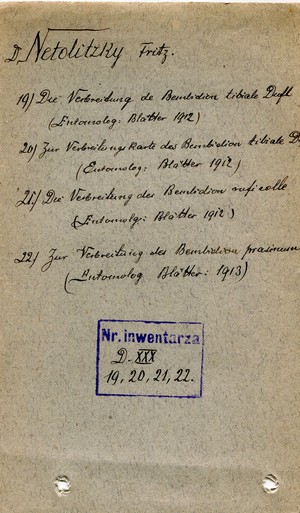 D. Netolitzky Fritz.
19) Die Verbreitung de Bembidion tibiale Duft
(Entomolog: Blätter 1912)
20) Zur Verbreitungskarte des Bembidion tibiale D
(Entomolog: Blätter 1912)
21) Die Verbreitung des Bembidion ruficolle
(Entomolg: Blätter 1912)
22) Zur Verbreitung des Bembidion prasinum
(Entomolog Blätter: 1913)
Nr. inwentarza
D. XXX
19, 20, 21, 22.